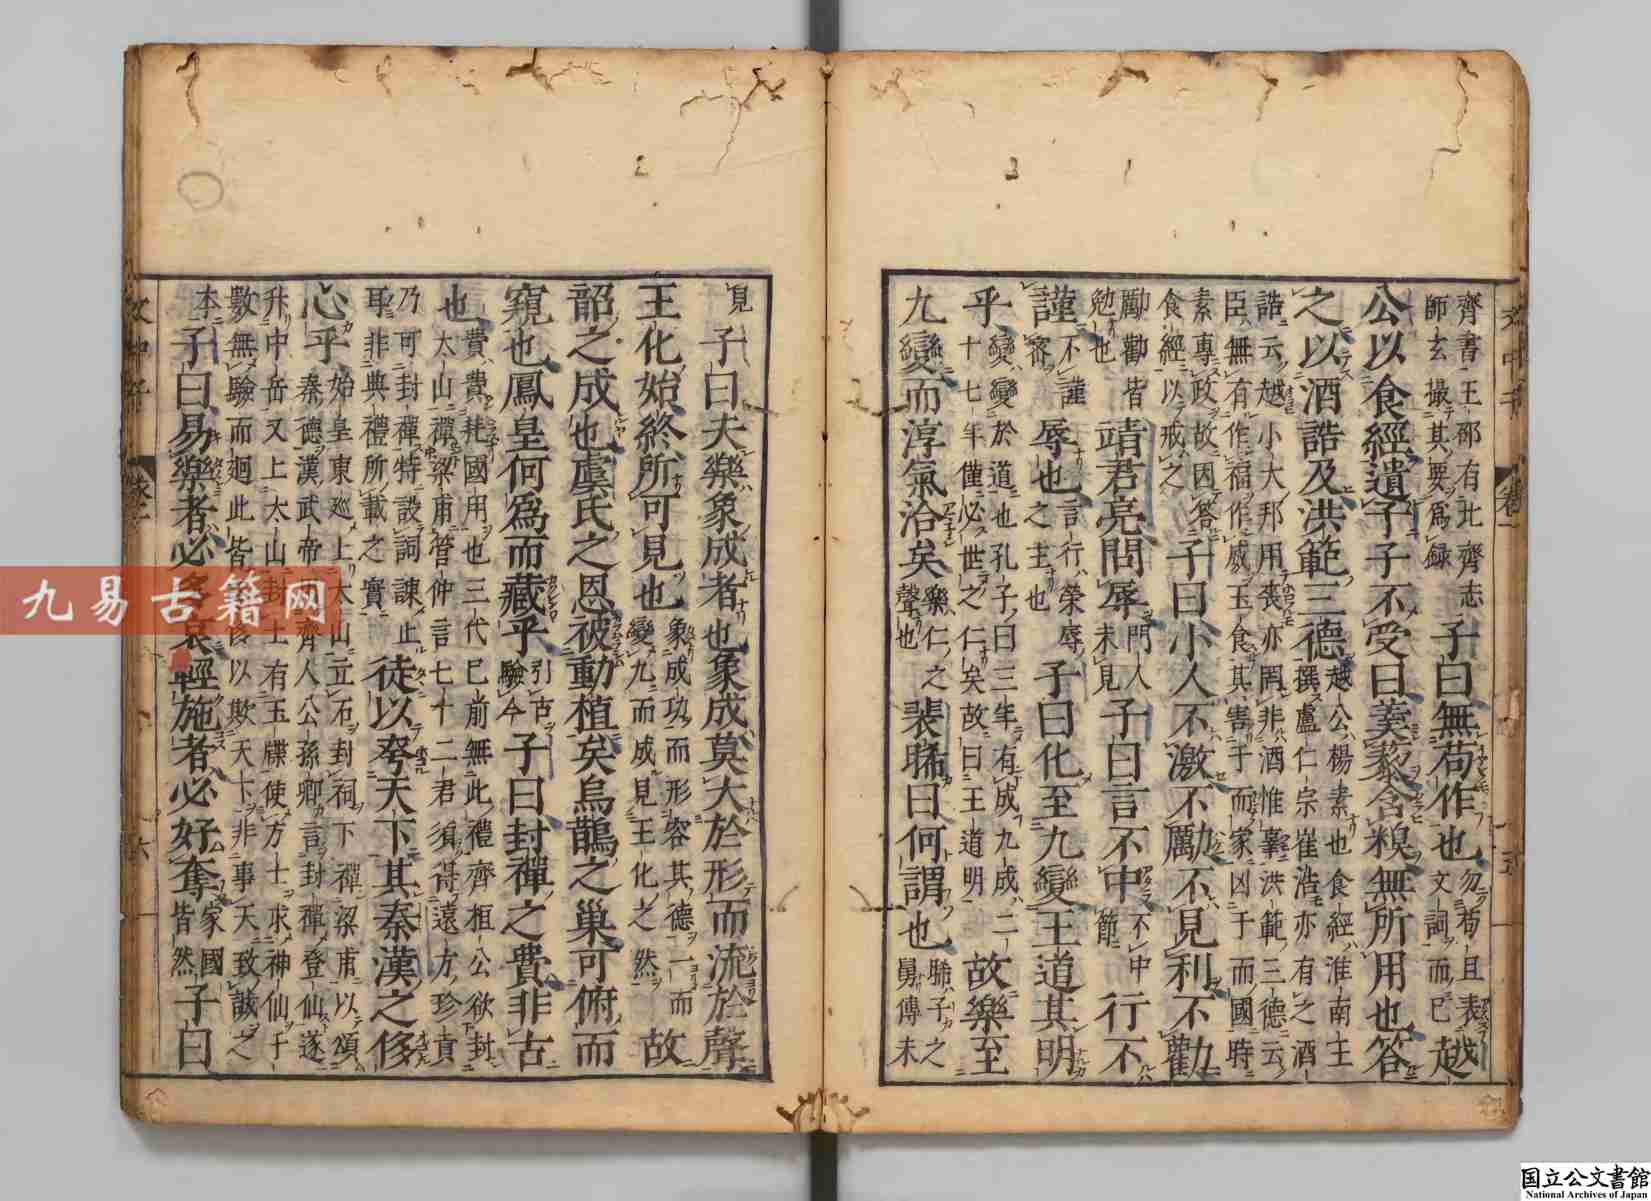 齊書王邵有北齊志
師玄撮其要爲録
子曰無苟作也
勿苟且表
文詞而已
越
公以食經遺子子不受曰羹藜含糗無所用也答
之以酒誥及洪範三德
越公楊素也食經淮南王
撰盧仁宗崔浩亦有之酒
誥云越小大邦用喪亦罔非酒惟辜洪範三德云
臣無有作福作威玉食其害于而家凶于而國時
素專政故因答
食經以戒之
子曰小人不激不勵不見利不勸
勵勸皆
勉也
靖君亮問辱
門人
未見
子曰言不中
不中
節
行不
謹
不謹
審
辱也
言行榮辱
之主也
子曰化至九變王道其明
乎
變變於道也孔子曰三年有成九成二
十七年僅必世之仁矣故曰王道明
故樂至
九變而淳氣洽矣
樂仁之
聲也
裴晞曰何謂也
晞子之
舅傳未
見
子曰夫樂象成者也象成莫大於形而流於聲
王化始終所可見也
象成功而形容其德一而
變九而成見王化之然
故
韶之成也虞氏之恩被動植矣烏鵲之巢可俯而
窺也鳳皇何爲而藏乎
引古
驗今
子曰封禪之費非古
也
費費耗國用也三代已前無此禮齊桓公欲封
太山禪梁甫管仲言七十二君須得遠方珍貢
乃可封禪特設詞諫止
耳非典禮所載之實
徒以夸天下其秦漢之侈
心乎
始皇東巡上太山立石封祠下禪梁甫以頌
秦德漢武帝齊人公孫卿言封禪登仙遂
升中岳又上太山封土有玉牒使方士求神仙千
數無驗而廻此皆以欺天下非事天致誠之
本
子曰易樂者必多哀輕施者必好奪
家國
皆然
子曰
九易古籍网
国立公文書館
National Archives of Japan